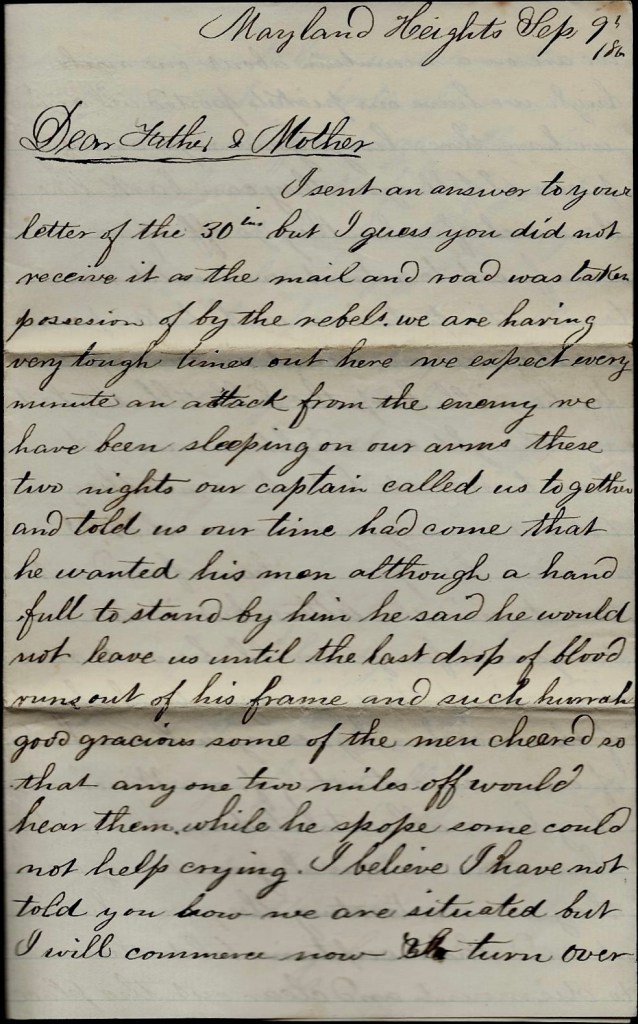 Maryland Heights Sep 9th
186
Dear Father & Mother
I sent an answer to your
letter of the 30 ins but I guess you did not
receive it as the mail and road was taken
possesion of by the rebels. we are having
very tough times out here we expect every
minute an attack from the enemy we
have been sleeping on our arms these
two nights our captain called us together
and told us our time had come that
he wanted his men although a hand
full to stand by him he said he would
not leave us until the last drop of blood
runs out of his frame and such hurrah
good gracious some of the men cheered so
that any one two miles off would
hear them. while he spope some could
not help crying. I believe I have not
told you how we are situated but
I will commence now turn over